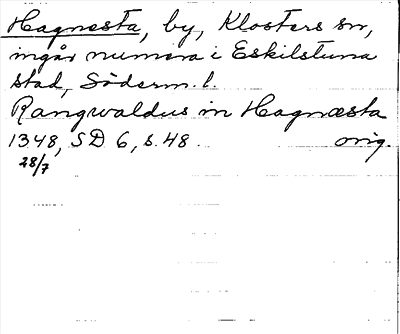 Hagnesta, by, Klosters sn,
ingår numera i Eskilstuna
stad, Söderm. l.
Rangwaldus in Hagnæsta
1348, SD 6, s. 48 orig.
28/7